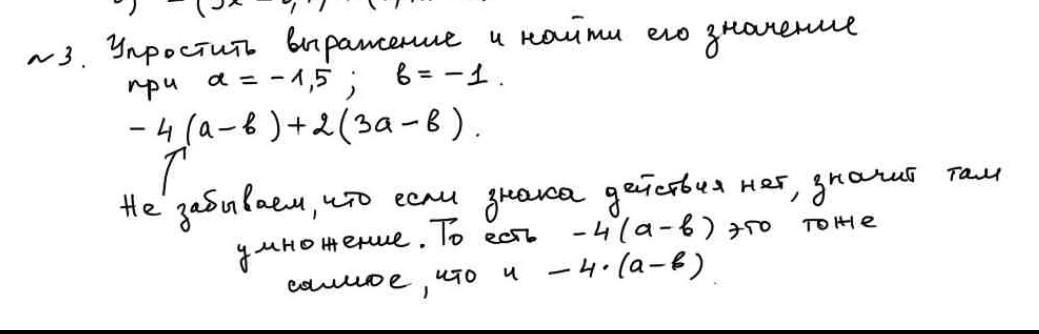 №3. Упростить выражение и найти его значение
при a = -1,5 ; в = -1.
- 4 (a - в ) + 2 (3a - в ).
Не забываем, что если знака действия нет, значит там
умножение. То есть -4(a-в) это тоже
самое, что и -4·(a-в)